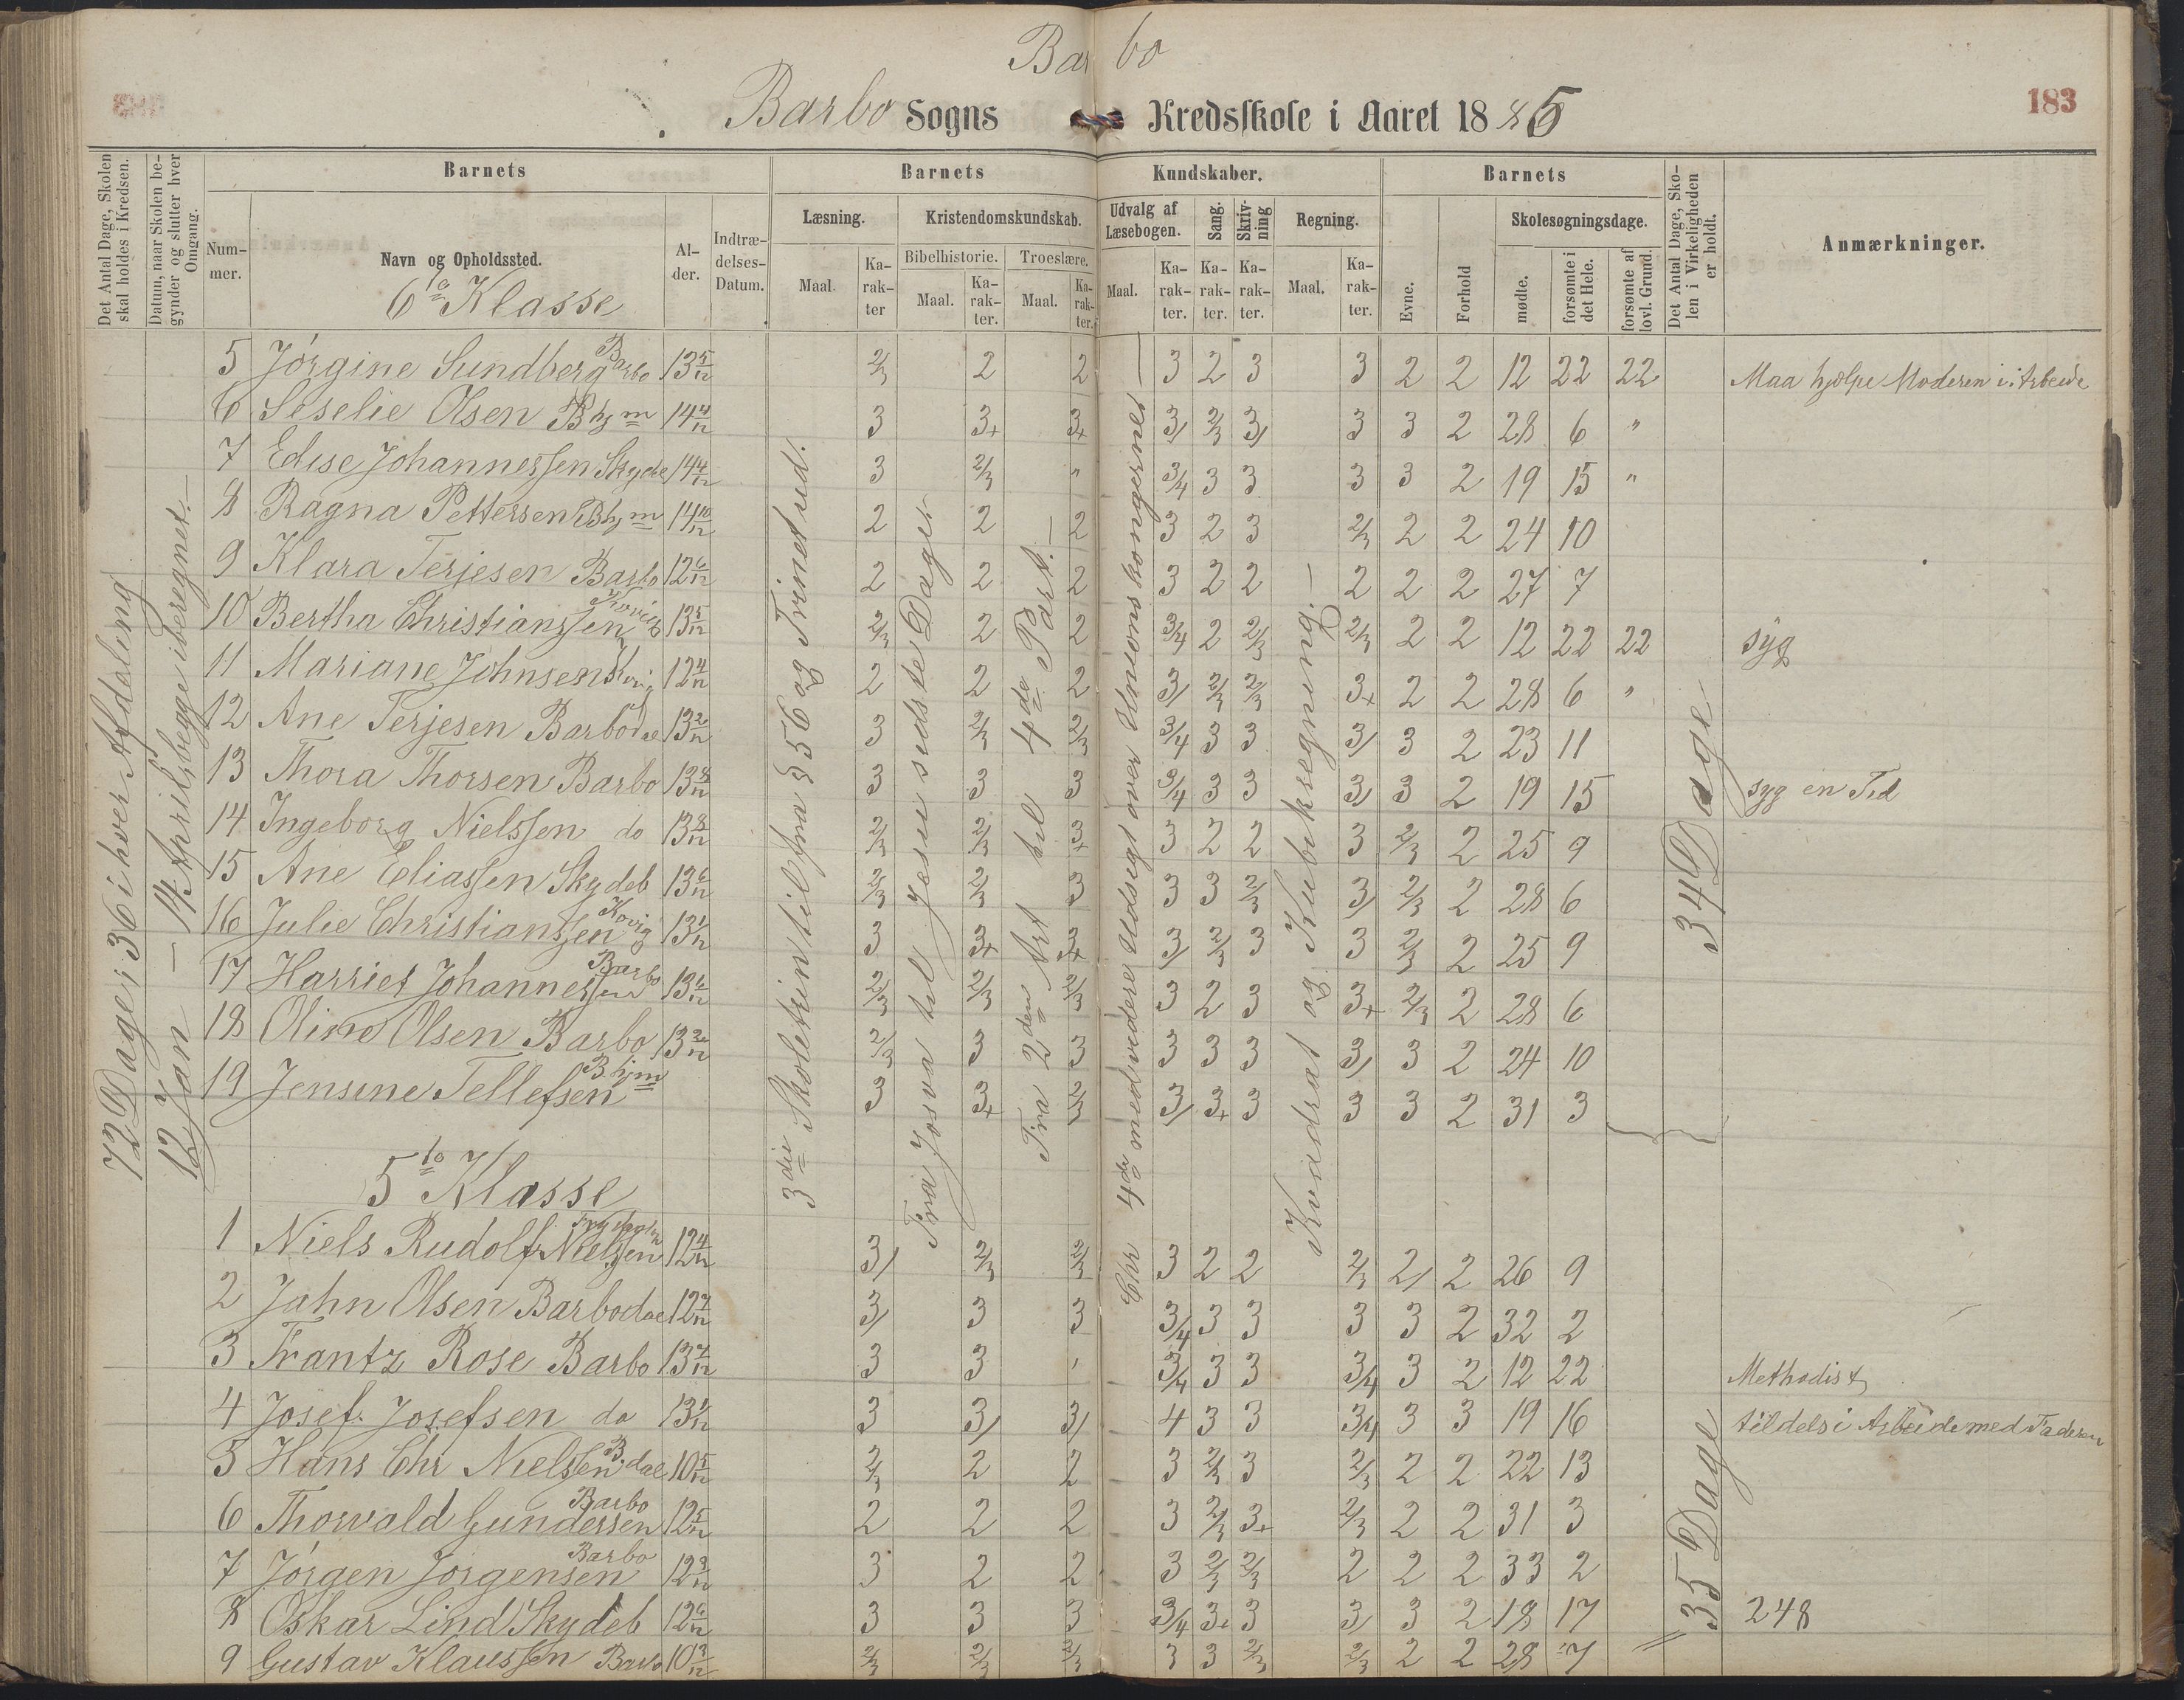 Barbo
183
Barbo Sogns Kredsskole i Aaret 1885
Det Antal Dage, Skolen skal holdes i Kredsen.
Datum, naar Skolen begynder og slutter hver Omgang.
Barnets
Barnets Kundskaber.
Barnets
Det Antal Dage, Skolen i Virkeligheden er holdt.
Anmærkninger.
Nummer.
Navn og Opholdssted.
Alder.
Indtrædelses-Datum.
Læsning.
Kristendomskundskab.
Udvalg af Læsebogen.
Sang.
Skrivning
Regning.
Evne.
Forhold
Skolesøgningsdage.
Bibelhistorie.
Troeslære.
Maal.
Karakter
Maal.
Karakter.
Maal.
Karakter.
Maal.
Karakter.
Karakter.
Karakter.
Maal.
Karakter.
mødte.
forsømte i det Hele.
forsømte af lovl. Grund.
6te Klasse
72 Dage; 36 i hver Afdeling
12 Jan – 14 April, begge iberegnet.–
3die Skoletrin til fra § 56 og Trinet ud.
Fra Josva til Jesu sidste Dage
Fra 2den Art til 4de Part.–
Chr 4de med videre Udsigt over Unionskongerne–
Kvadrat og Kubikregning.–
34 Dage
5 Jørgine Sundberg Barbo 13 5/12 2/3 2 2 3 2 3 3 2 2 12 22 22 Maa hjelpe Moderen i Arbeide
6 Seselie Olsen Bhjm 14 4/12 3 3+ 3+ 3/ 2/3 3/ 3 3 2 28 6 "
7 Edise Johannessen Skyde 14 4/12 3 2/3 " 3/4 3 3 3 3 2 19 15 "
8 Ragna Pettersen Bhjm 14 10/12 2 2 2 3 2 3 2/3 2 2 24 10
9 Klara Terjesen Barbo 12 6/12 2 2 2 3 2 2 2 2 2 27 7
10 Bertha Christianssen Kovig 13 5/12 2/3 2 2 3/4 2 2/3 2/3 2 2 12 22 22 syg
11 Mariane Johnsen Kovig 12 4/12 2 2 2 3/ 2/3 2/3 3+ 2 2 28 6 "
12 Ane Terjesen Barbodal 13 2/12 3 2/3 2/3 3/4 3 3 3/ 3 2 23 11
13 Thora Thorsen Barbo 13 8/12 3 3 3 3/4 3 3 3/ 3 2 19 15 syg en Tid
14 Ingeborg Nielssen do 13 8/12 2/3 2/3 3+ 3 2 2 3 2/3 2 25 9
15 Ane Eliassen Skydeb 13 6/12 2/3 2/3 3 3 3 2/3 3/ 2/3 2 28 6
16 Julie Christianssen Kovig 13 1/12 3 3+ 3+ 3/ 2/3 3 3 2/3 2 25 9
17 Harriet Johannessen Barbo 13 6/12 2/3 2/3 2/3 3 2 3 3+ 2/3 2 28 6
18 Oline Olsen Barbo 13 3/12 2/3 3 3 3 3 3 3/ 3 2 24 10
19 Jensine Tellefsen Bhjm 3 3+ 2/3 3/ 3+ 3 3 3 2 31 3
5te Klasse
1 Niels Rudolf Nielssen 12 4/12 3/ 2/3 2/3 3 2 2 2/3 2/ 2 26 9
2 Jahn Olsen Barbodal 12 7/12 3/ 3 3 3/4 3 3 3 3 2 32 2
3 Frantz Rose Barbo 13 7/12 3 3 3/4 3 3 3/4 3 2 12 22 Methodist
4 Josef Josefsen do 13 9/12 3 3/ 3/ 4 3 3 3/4 3 3 19 16 tildels i Arbeide med Faderen
5 Hans Chr Nielssen B.dal 10 5/12 2/3 2 2 3 2/3 3 2/3 2 2 22 13
6 Thorvald Gundersen Barbo 12 5/12 2 2 2 3 2/3 3+ 2/3 2 2 31 3
7 Jørgen Jørgensen Barbo 12 3/12 3 2 2 3 2/3 2/3 2 2 2 33 2
8 Oskar Lind Skydeb 12 6/12 3 3 3 3/4 3+ 3 3/ 3 2 18 17 248
9 Gustav Klaussen Barbo 10 3/12 2/3 2/3 2/3 3 3 2/3 2/3 2 2 28 7
35 Dage